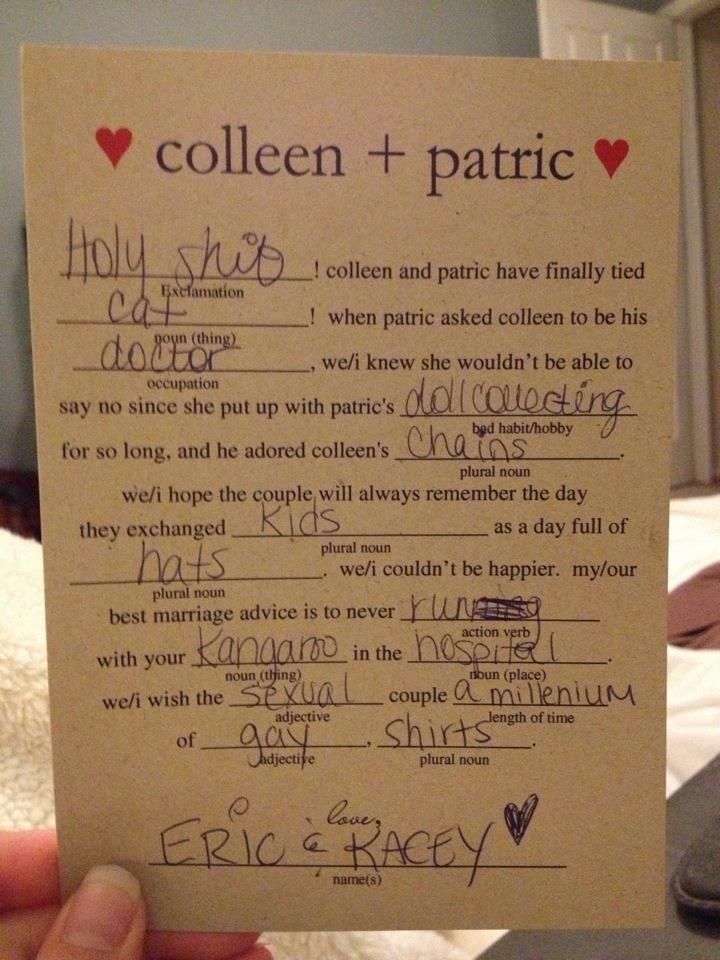 ♥ colleen + patric ♥
Holy shit ! colleen and patric have finally tied
Exclamation
cat ! when patric asked colleen to be his
noun (thing)
doctor , we/i knew she wouldn't be able to
occupation
say no since she put up with patric's doll collecting
bad habit/hobby
for so long, and he adored colleen's Chains .
plural noun
we/i hope the couple will always remember the day
they exchanged Kids as a day full of
plural noun
hats . we/i couldn't be happier. my/our
plural noun
best marriage advice is to never run
action verb
with your Kangaroo in the hospital .
noun (thing) noun (place)
we/i wish the sexual couple a millenium
adjective length of time
of gay , shirts .
adjective plural noun
love,
ERIC & KACEY
name(s)